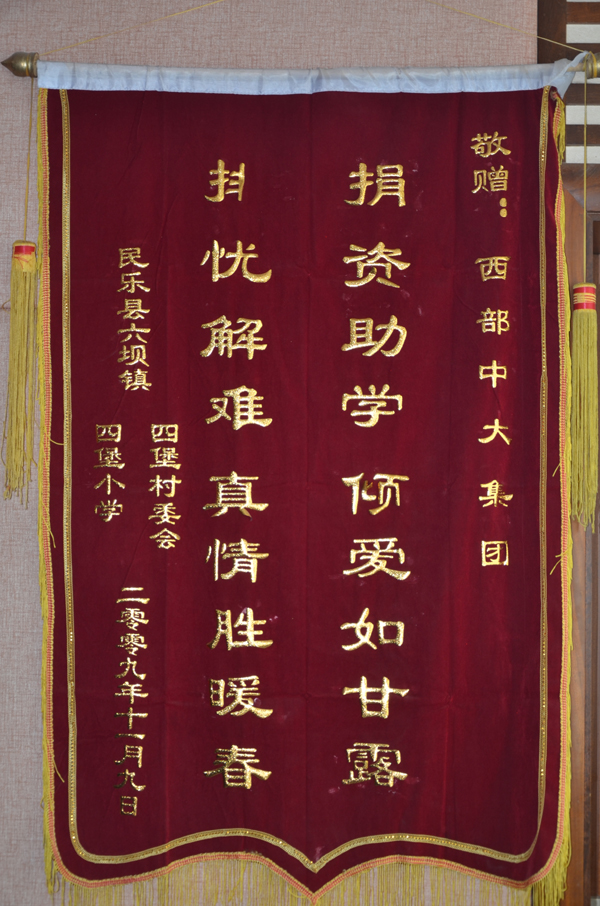 敬赠：西部中大集团
捐资助学 倾爱如甘露
忧解难 真情胜暖春
民乐县六坝镇
四堡村委会
四堡小学
二零零九年十一月九日